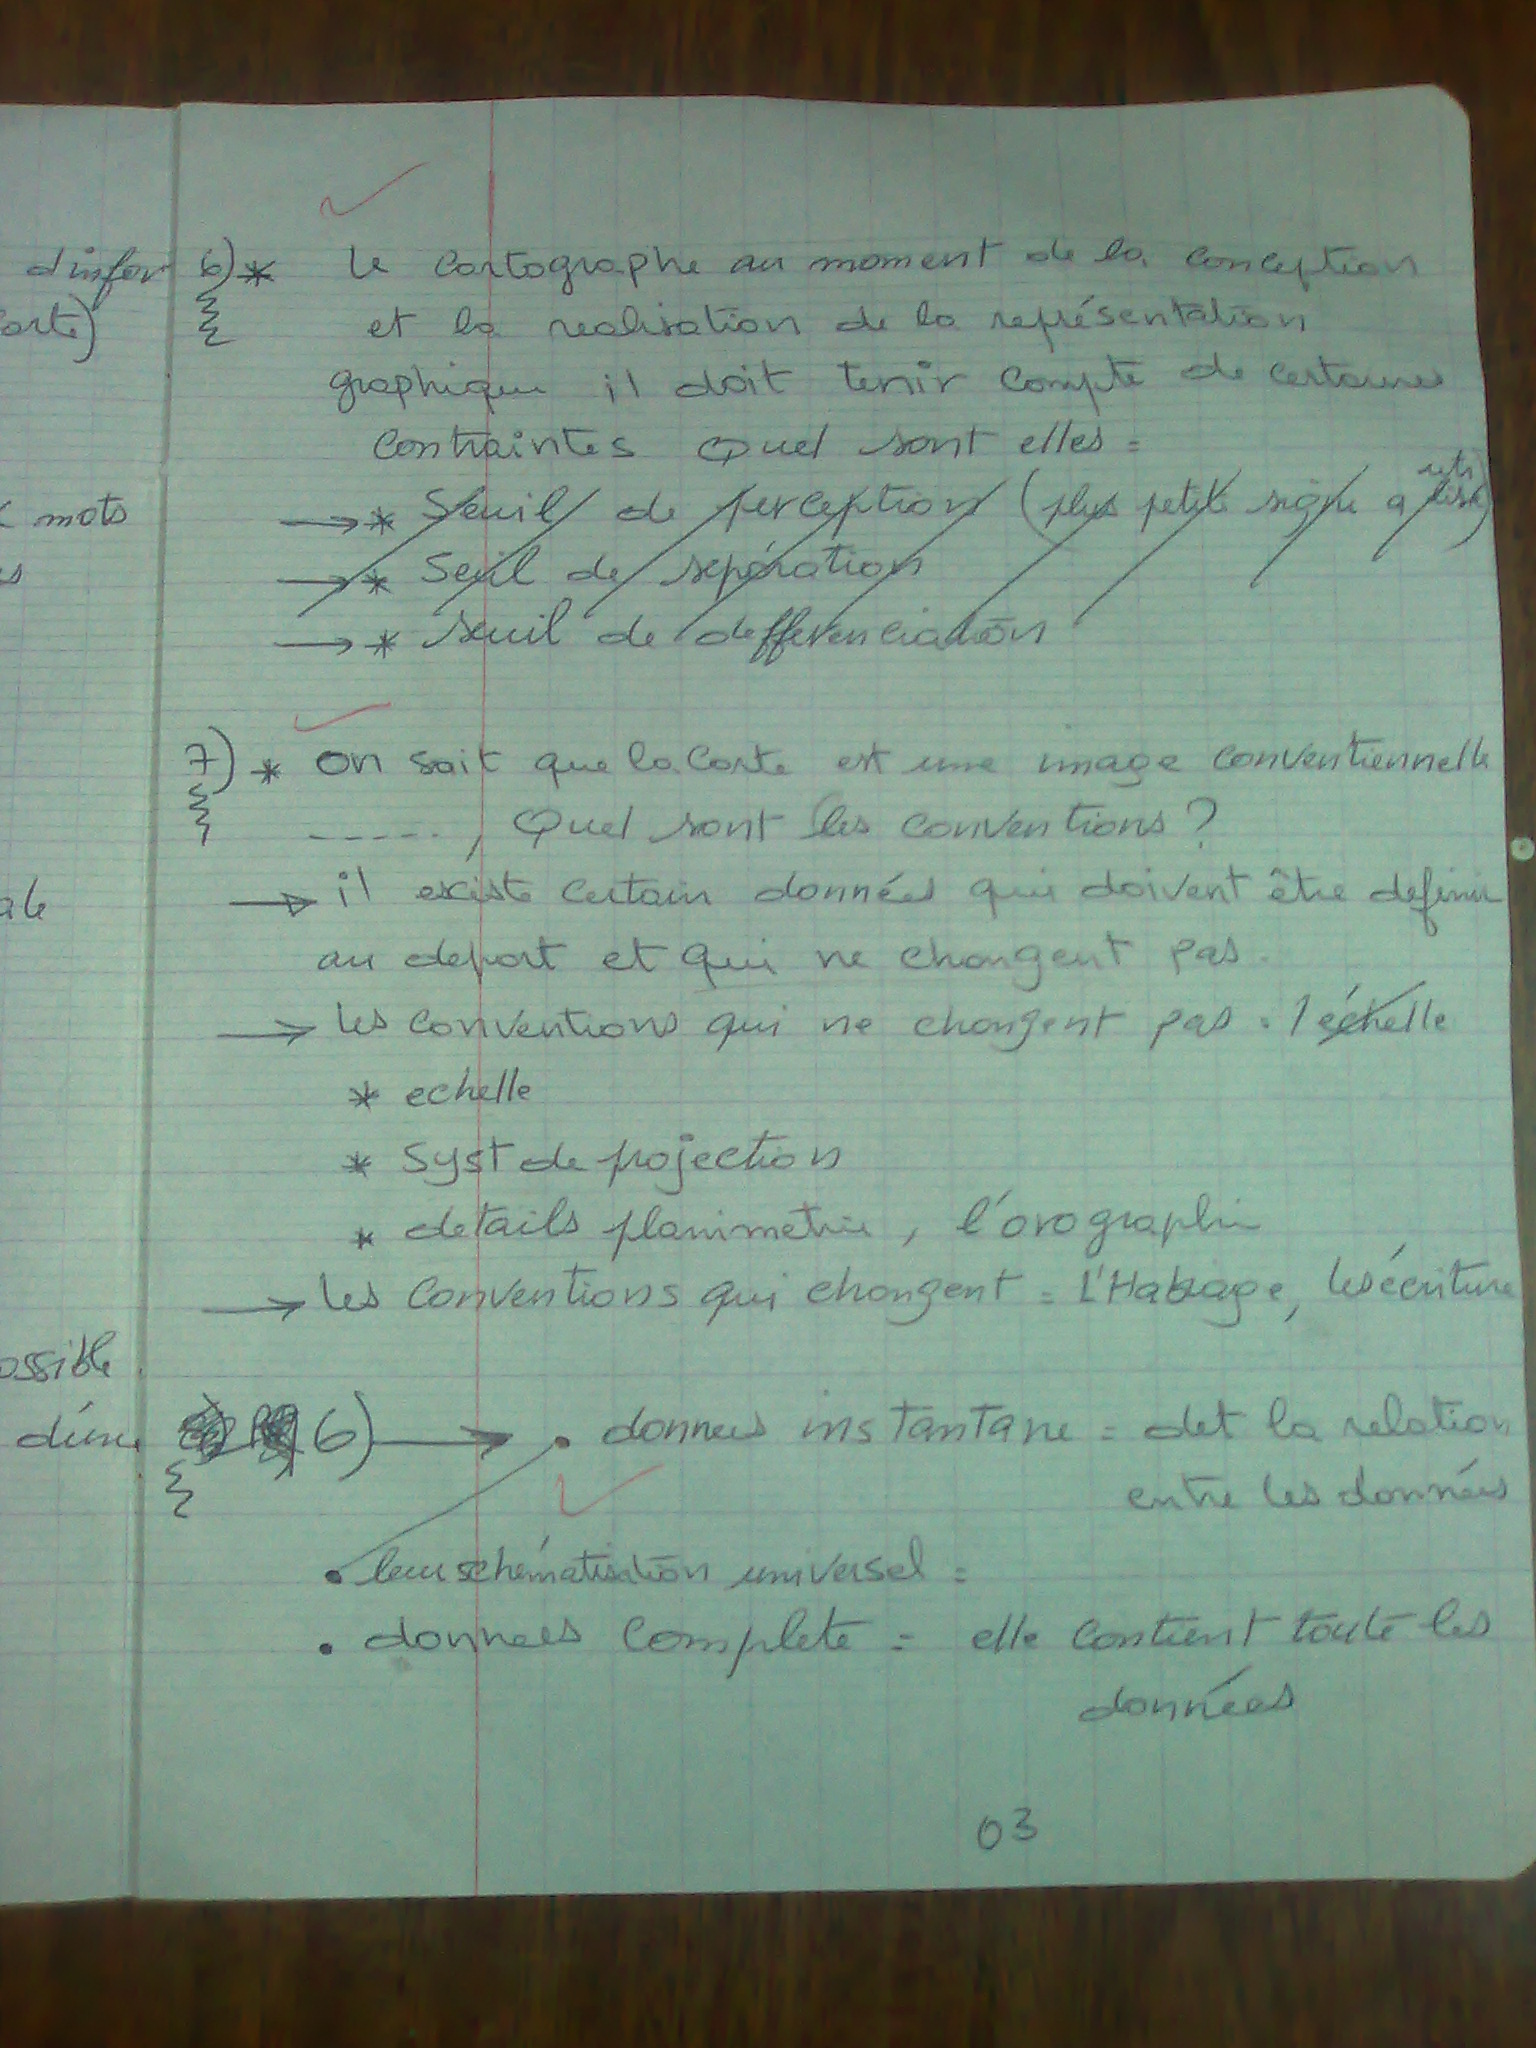 d'infor
carte)
x mots
es
ale
ossible
d'une
6) * le cartographe au moment de la conception
et la realisation de la représentation
graphique il doit tenir compte de certaines
contraintes Quel sont elles =
→ * Seuil de perception (plus petite signe a utilise)
→ * Seuil de séparation
→ * seuil de defferenciation
7) * on sait que la carte est une image conventiennelle
-----, Quel sont les conventions ?
→ il existe certain données qui doivent être definir
au depart et qui ne changent pas.
→ les conventions qui ne changent pas : l'échelle
* echelle
* Syst de projection
* details planimetrie, l'orographie
→ les conventions qui changent = L'Habiage, les écriture
6) → • donnees instantane = det la relation
entre les données
• leur schématisation universel =
• donnees complete = elle contient toute les
données
03